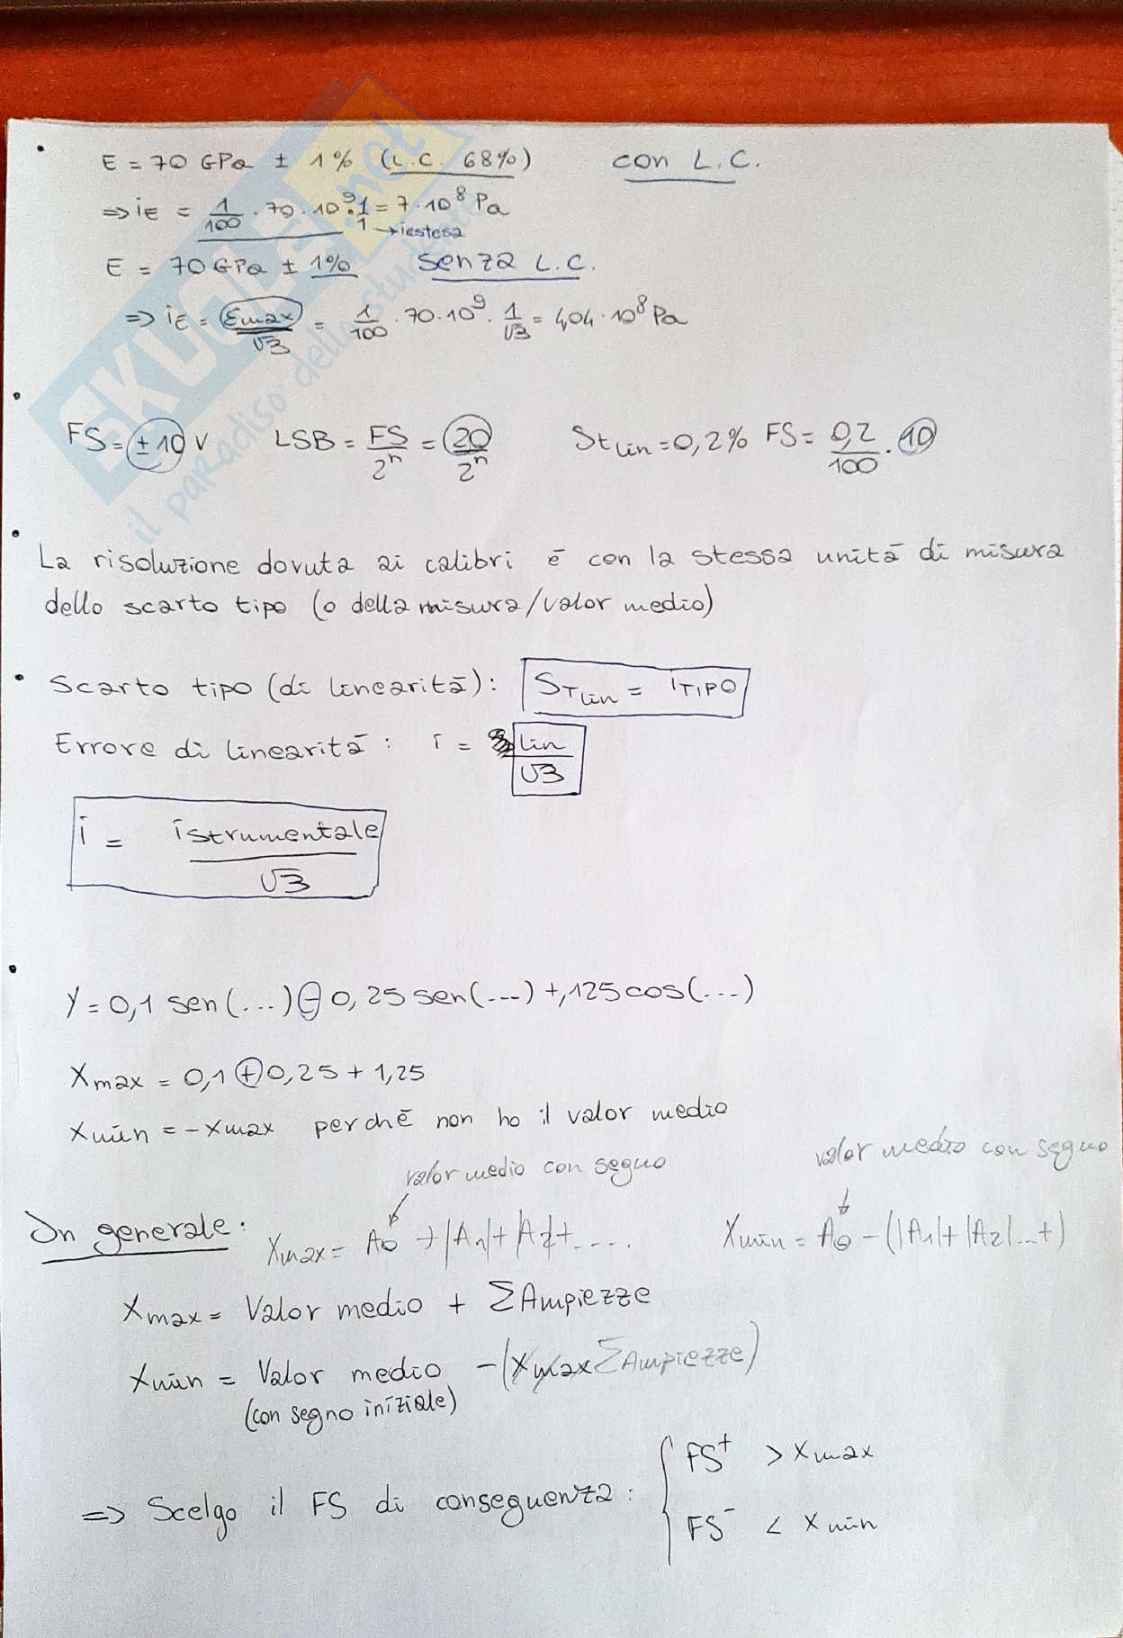 • E = 70 GPa ± 1% (L.C. 68%) con L.C.
=> iE = 1/100 · 70 · 10⁹ · 1/1 = 7 · 10⁸ Pa
→ iestesa
E = 70 GPa ± 1% senza L.C.
=> iE = εmax/√3 = 1/100 · 70 · 10⁹ · 1/√3 = 4,04 · 10⁸ Pa
• FS = ±10 V LSB = FS/2ⁿ = 20/2ⁿ St lin = 0,2% FS = 0,2/100 · 10
• La risoluzione dovuta ai calibri è con la stessa unità di misura
dello scarto tipo (o della misura/valor medio)
• Scarto tipo (di linearità): ST lin = iTIPO
Errore di linearità: i = lin/√3
i = istrumentale/√3
• Y = 0,1 sen(...) - 0,25 sen(...) + ,125 cos(...)
Xmax = 0,1 + 0,25 + 1,25
Xmin = -Xmax perché non ho il valor medio
valor medio con segno valor medio con segno
In generale: Xmax = A0 + |A1| + |A2| + .... Xmin = A0 - (|A1| + |A2| ...+)
Xmax = Valor medio + ΣAmpiezze
Xmin = Valor medio - (Xmax ΣAmpiezze)
(con segno iniziale)
=> Scelgo il FS di conseguenza: { FS⁺ > Xmax
FS⁻ < Xmin
SKUOLA.net
il paradiso dello studente